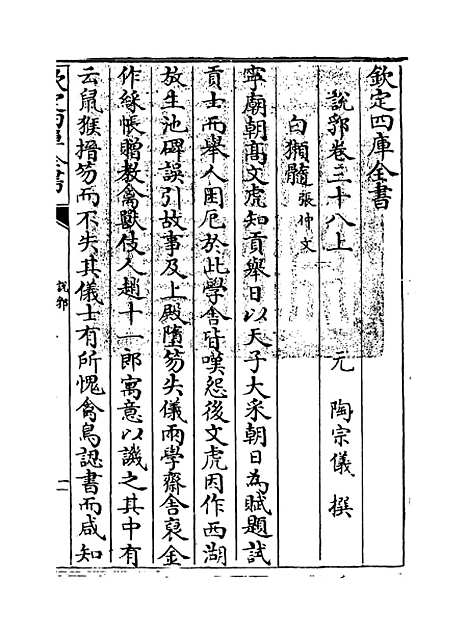 欽定四庫全書
說郛卷三十八上
元 陶宗儀 撰
白獺髓 張仲文
寧廟朝髙文虎知貢舉日以天子大采朝日為賦題試
貢士而舉人困厄於此學舎皆嘆怨後文虎因作西湖
放生池碑誤引故事及上殿墮笏失儀兩學齋舎裒金
作綵帳贈教禽獸伎人趙十一郎寓意以譏之其中有
云鼠猴搢笏而不失其儀士有所愧禽鳥認書而咸知
欽定四庫全書
說郛